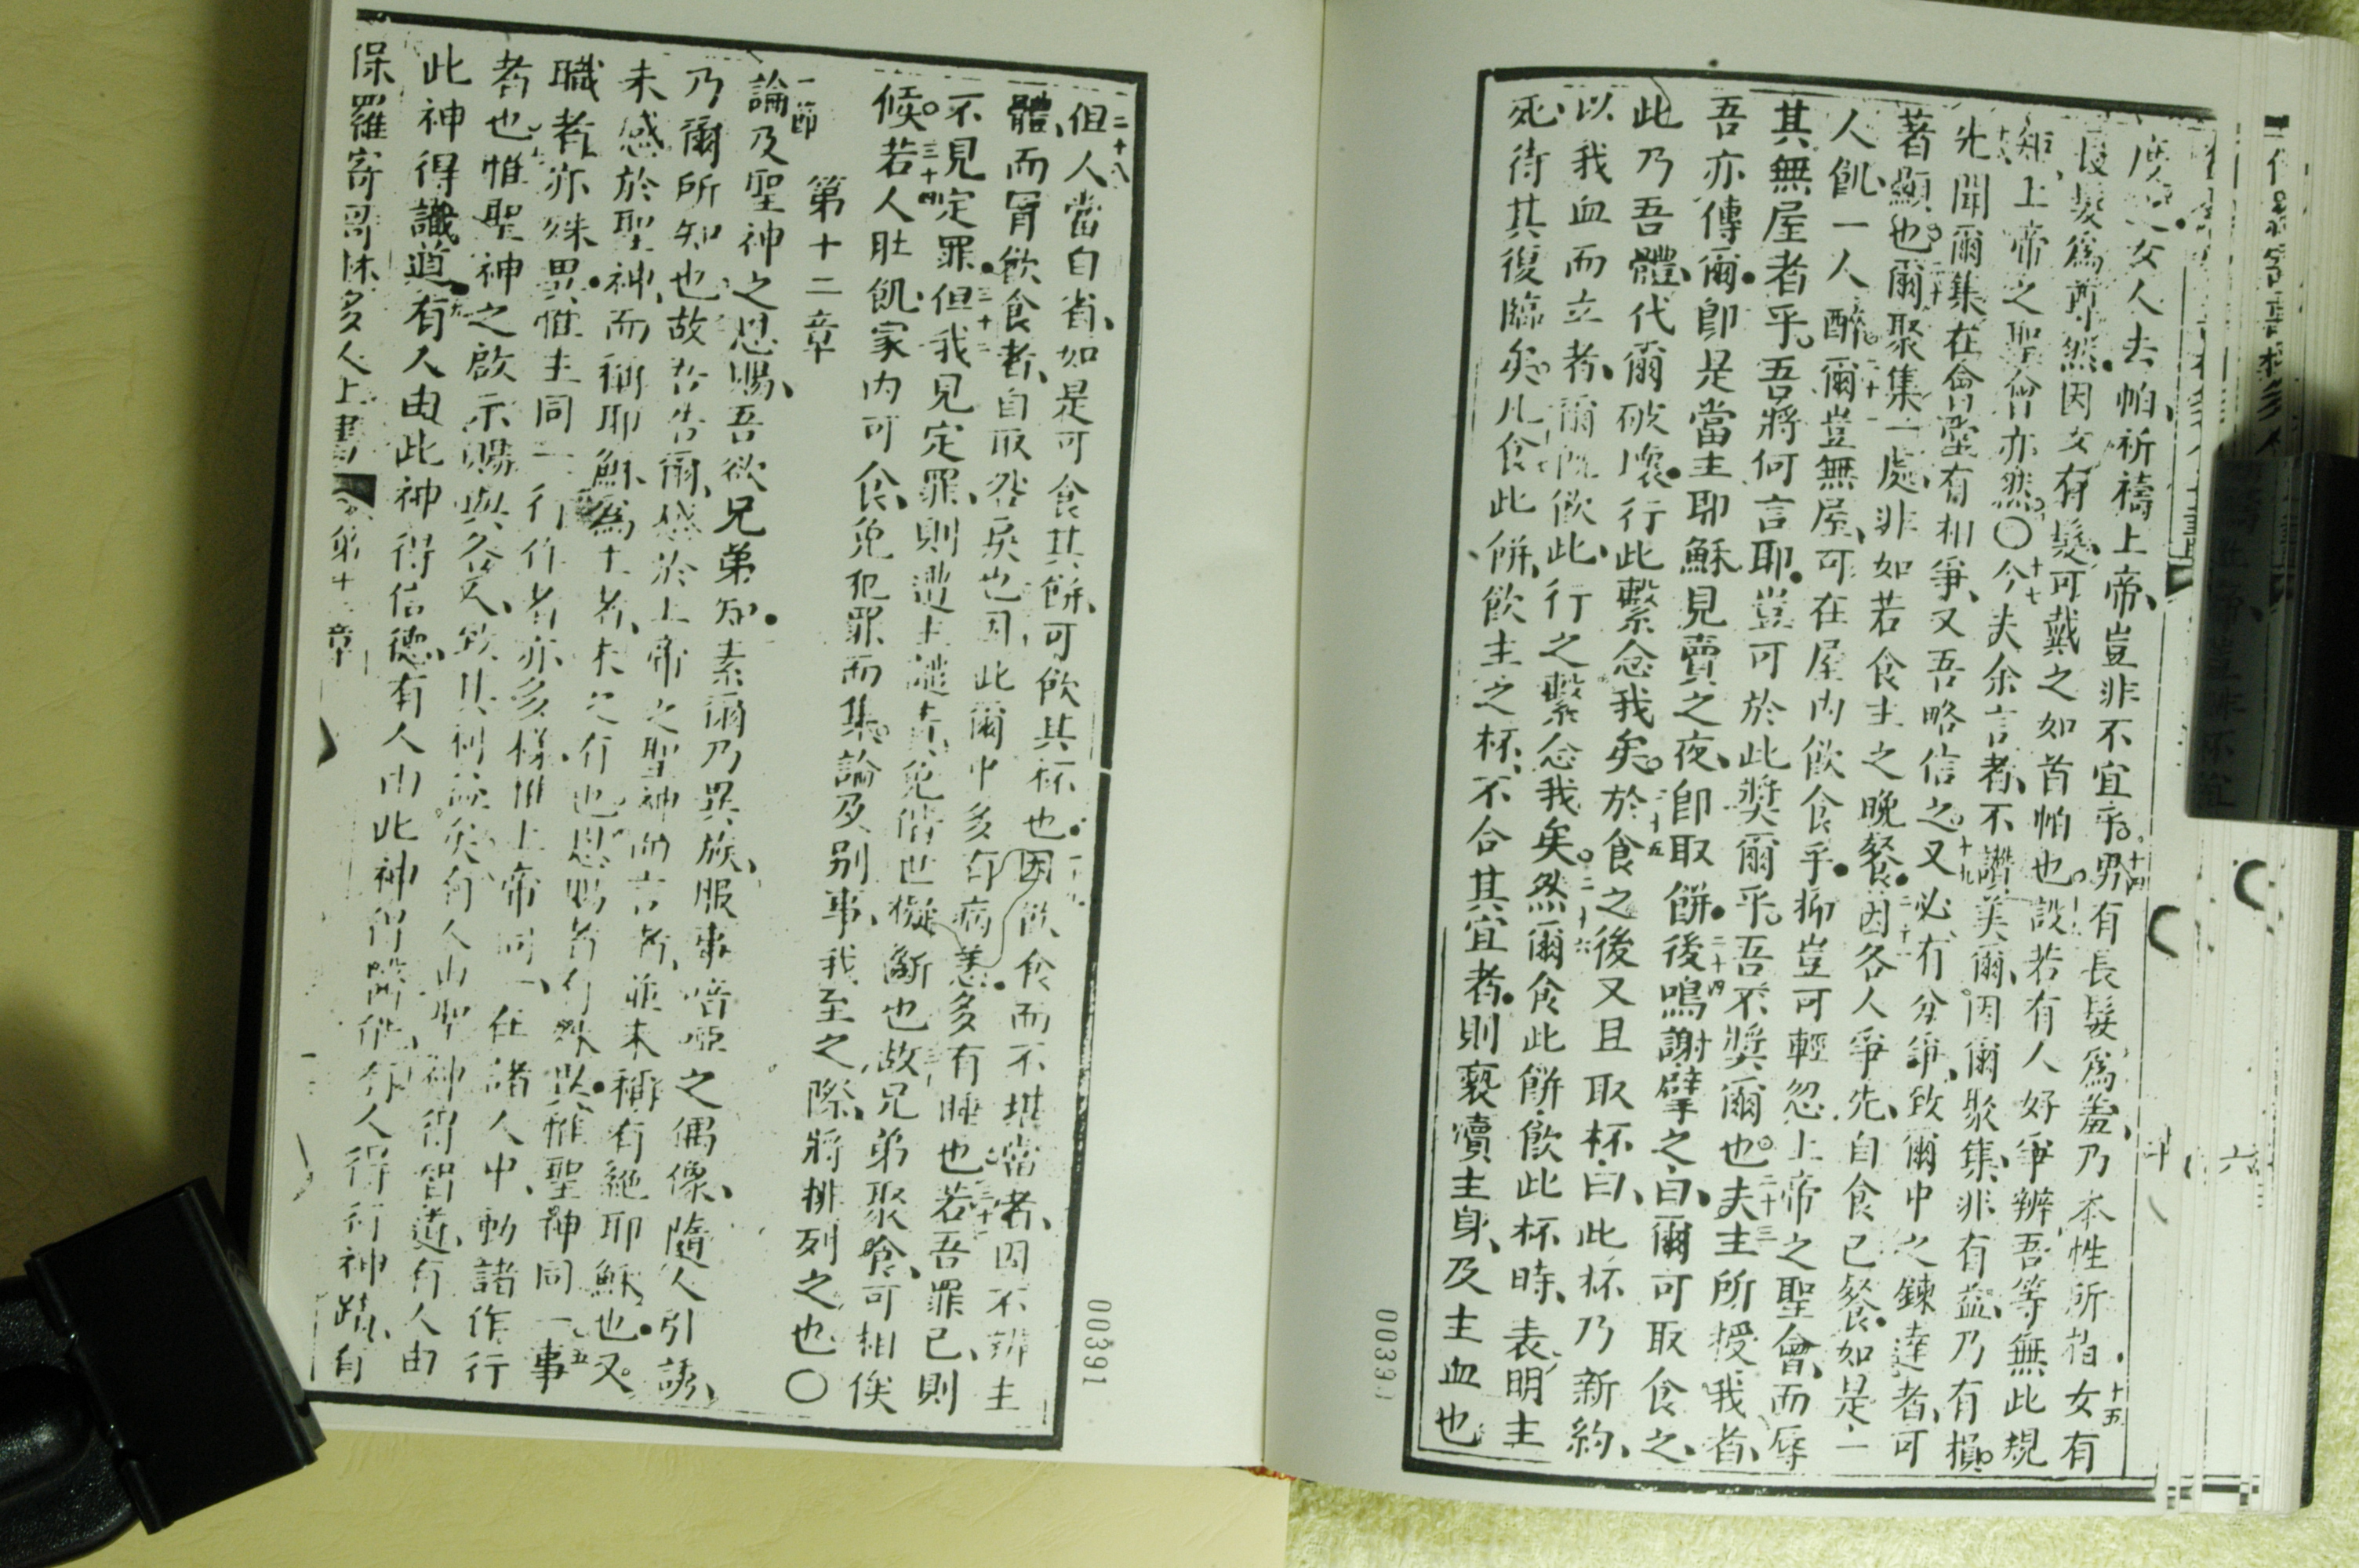 度之女人去帕祈禱上帝豈非不宜乎十四男有長髮爲羞乃本性所指十五女有
長髮爲尊然因女有髮可戴之如首帕也設若有人好爭辨吾等無此規
矩上帝之聖會亦然〇十七今夫余言者不讚美爾因爾聚集非有益乃有損
先聞爾集在會堂有相爭又吾略信之十九又必有分爭致爾中之鍊達者可
著顯也二十爾聚集一處非如若食主之晚餐二十一因各人爭先自食己餐如是一
人飢一人醉爾豈無屋可在屋內飲食乎抑豈可輕忽上帝之聖會而辱
其無屋者乎吾將何言耶豈可於此獎爾乎吾不獎爾也二十三夫主所授我者
吾亦傳爾卽是當主耶穌見賣之夜卽取餅二十四後鳴謝擘之曰爾可取食之
此乃吾體代爾破壞行此繫念我矣二十五於食之後又且取杯曰此杯乃新約
以我血而立者爾旣飲此行之繫念我矣二十六然爾食此餅飲此杯時表明主
死待其復臨矣凡食此餅飲主之杯不合其宜者則褻瀆主身及主血也
00391
二十八但人當自省如是可食其餅可飲其杯也因飲食而不堪當者因不辨主
體而冐飲食者自取咎戾也因此爾中多有病恙多有睡也若吾罪己則
不見定罪三十二但我見定罪則遭主譴責免偕世擬斷也故兄弟聚飡可相俟
候三十四若人肚飢家內可食免犯罪而集論及别事我至之際將排列之也〇
第十二章
一節論及聖神之恩賜吾欲兄弟知素爾乃異族服事喑啞之偶像隨人引誘
乃爾所知也故吾告爾感於上帝之聖神而言者並未稱有絕耶穌也又
未感於聖神而稱耶穌爲主者未之有也恩賜者有殊以惟聖神同一五事
職者亦殊異惟主同一行作者亦多樣惟上帝同一在諸人中動諸作行
者也惟聖神之啟示賜與各人致其利益矣有人由聖神得智道有人由
此神得識道有人由此神得信德有人由此神得醫能有人得行神蹟有
保羅寄哥林多人上書 第十二章